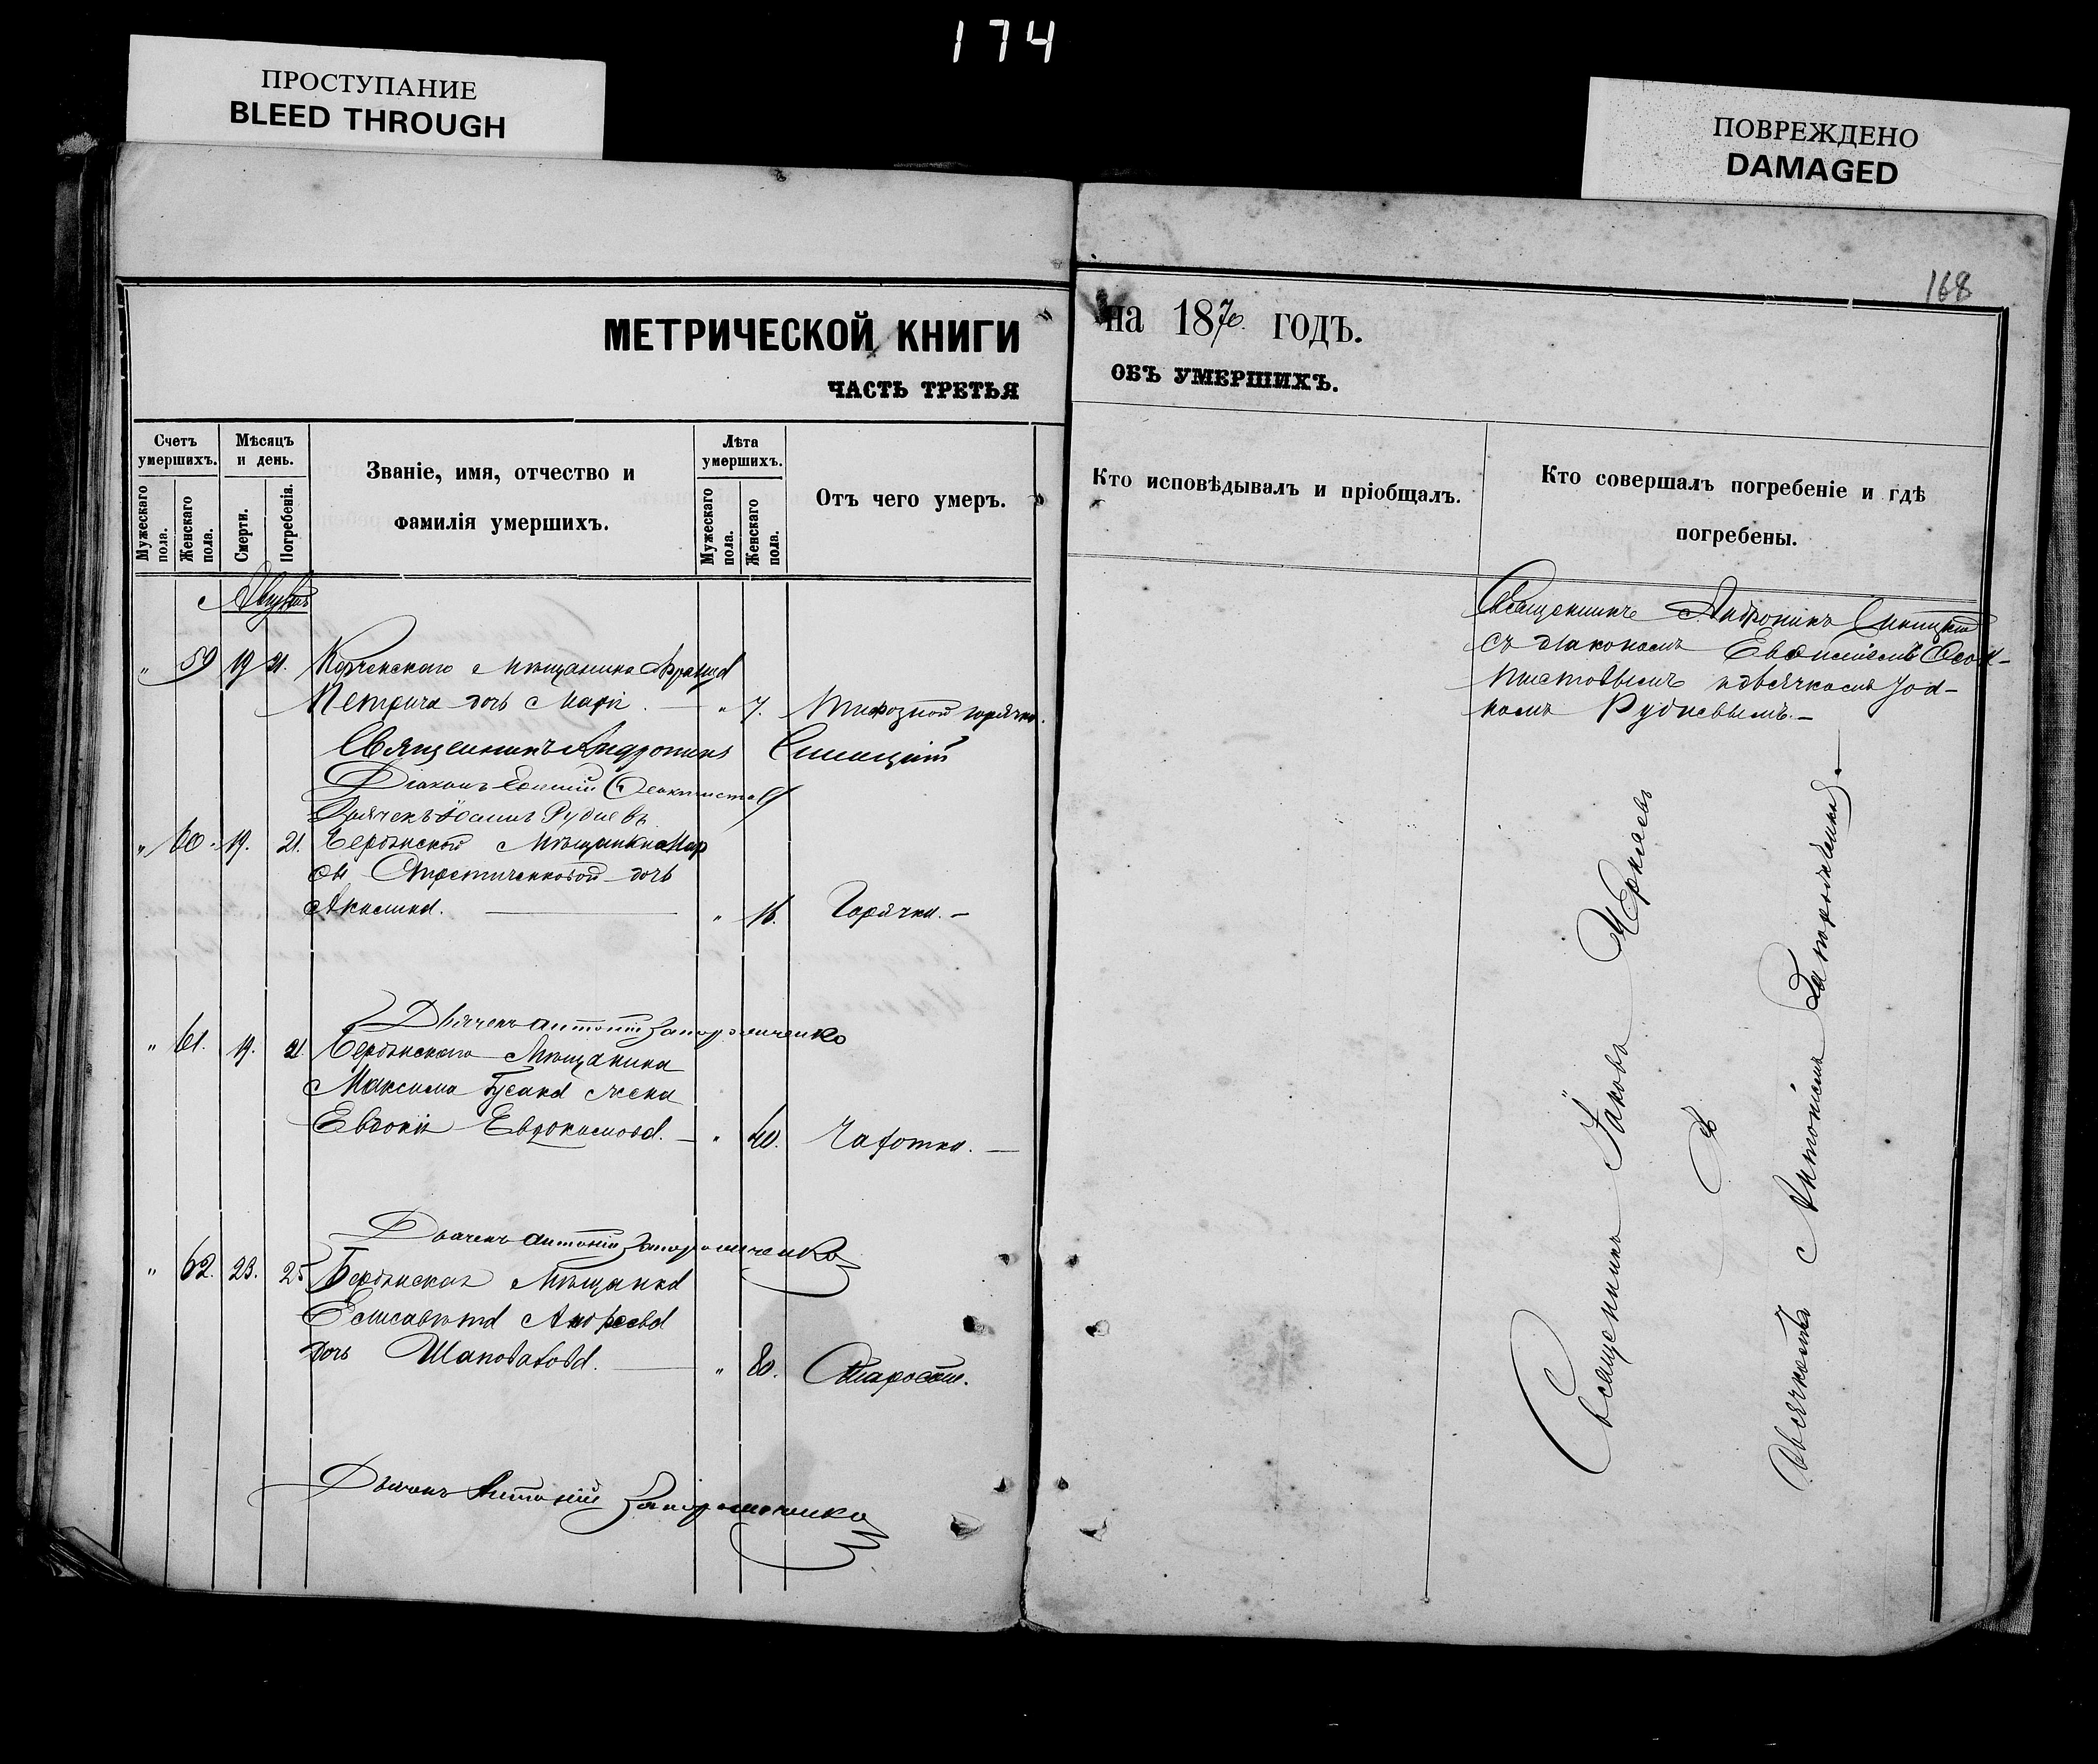 174
ПРОСТУПАНИЕ
BLEED THROUGH
ПОВРЕЖДЕНО
DAMAGED
168
МЕТРИЧЕСКОЙ КНИГИ
ЧАСТЬ ТРЕТЬЯ
на 1870 годъ.
ОБЪ УМЕРШИХЪ.
Счетъ умершихъ.
Мужескаго пола.
Женскаго пола.
Мѣсяцъ и день.
Смерти.
Погребенія.
Званіе, имя, отчество и
фамилія умершихъ.
Лѣта умершихъ.
Мужескаго пола.
Женскаго пола.
Отъ чего умеръ.
Кто исповѣдывалъ и пріобщалъ.
Кто совершалъ погребеніе и гдѣ
погребены.
Августъ
" 59 19 21. мѣщанина
Петрича дочь Марія. — " 7. Тифозной горячки.
Священникъ Андроникъ Синицкій
Діаконъ Феоктистовъ
Дьячекъ Іоаннъ Рудневъ
" 60. 19. 21. Бердянской мѣщанки Мар
дочь
Акилина. — " 16. Горячки. —
Дьячекъ Антоній Запорожченко
" 61. 19. 21. Бердянскаго мѣщанина
Максима Гусака жена
Евдокія Евдокимова. — " 40. Чахотки. —
Дьячекъ Антоній Запорожченко
" 62. 23. 25 Бердянская мѣщанка
Елисавета Андреева
дочь Шаповалова. — " 80. Старости.
Дьячекъ Антоній Запорожченко
Священникъ Андроникъ Синицкій
съ діакономъ Евѳиміемъ Ѳеок-
тистовымъ и дьячкомъ Іоан-
номъ Рудневымъ. —
Священникъ Іаковъ
съ
дьячкомъ Антоніемъ Запорожченкомъ.